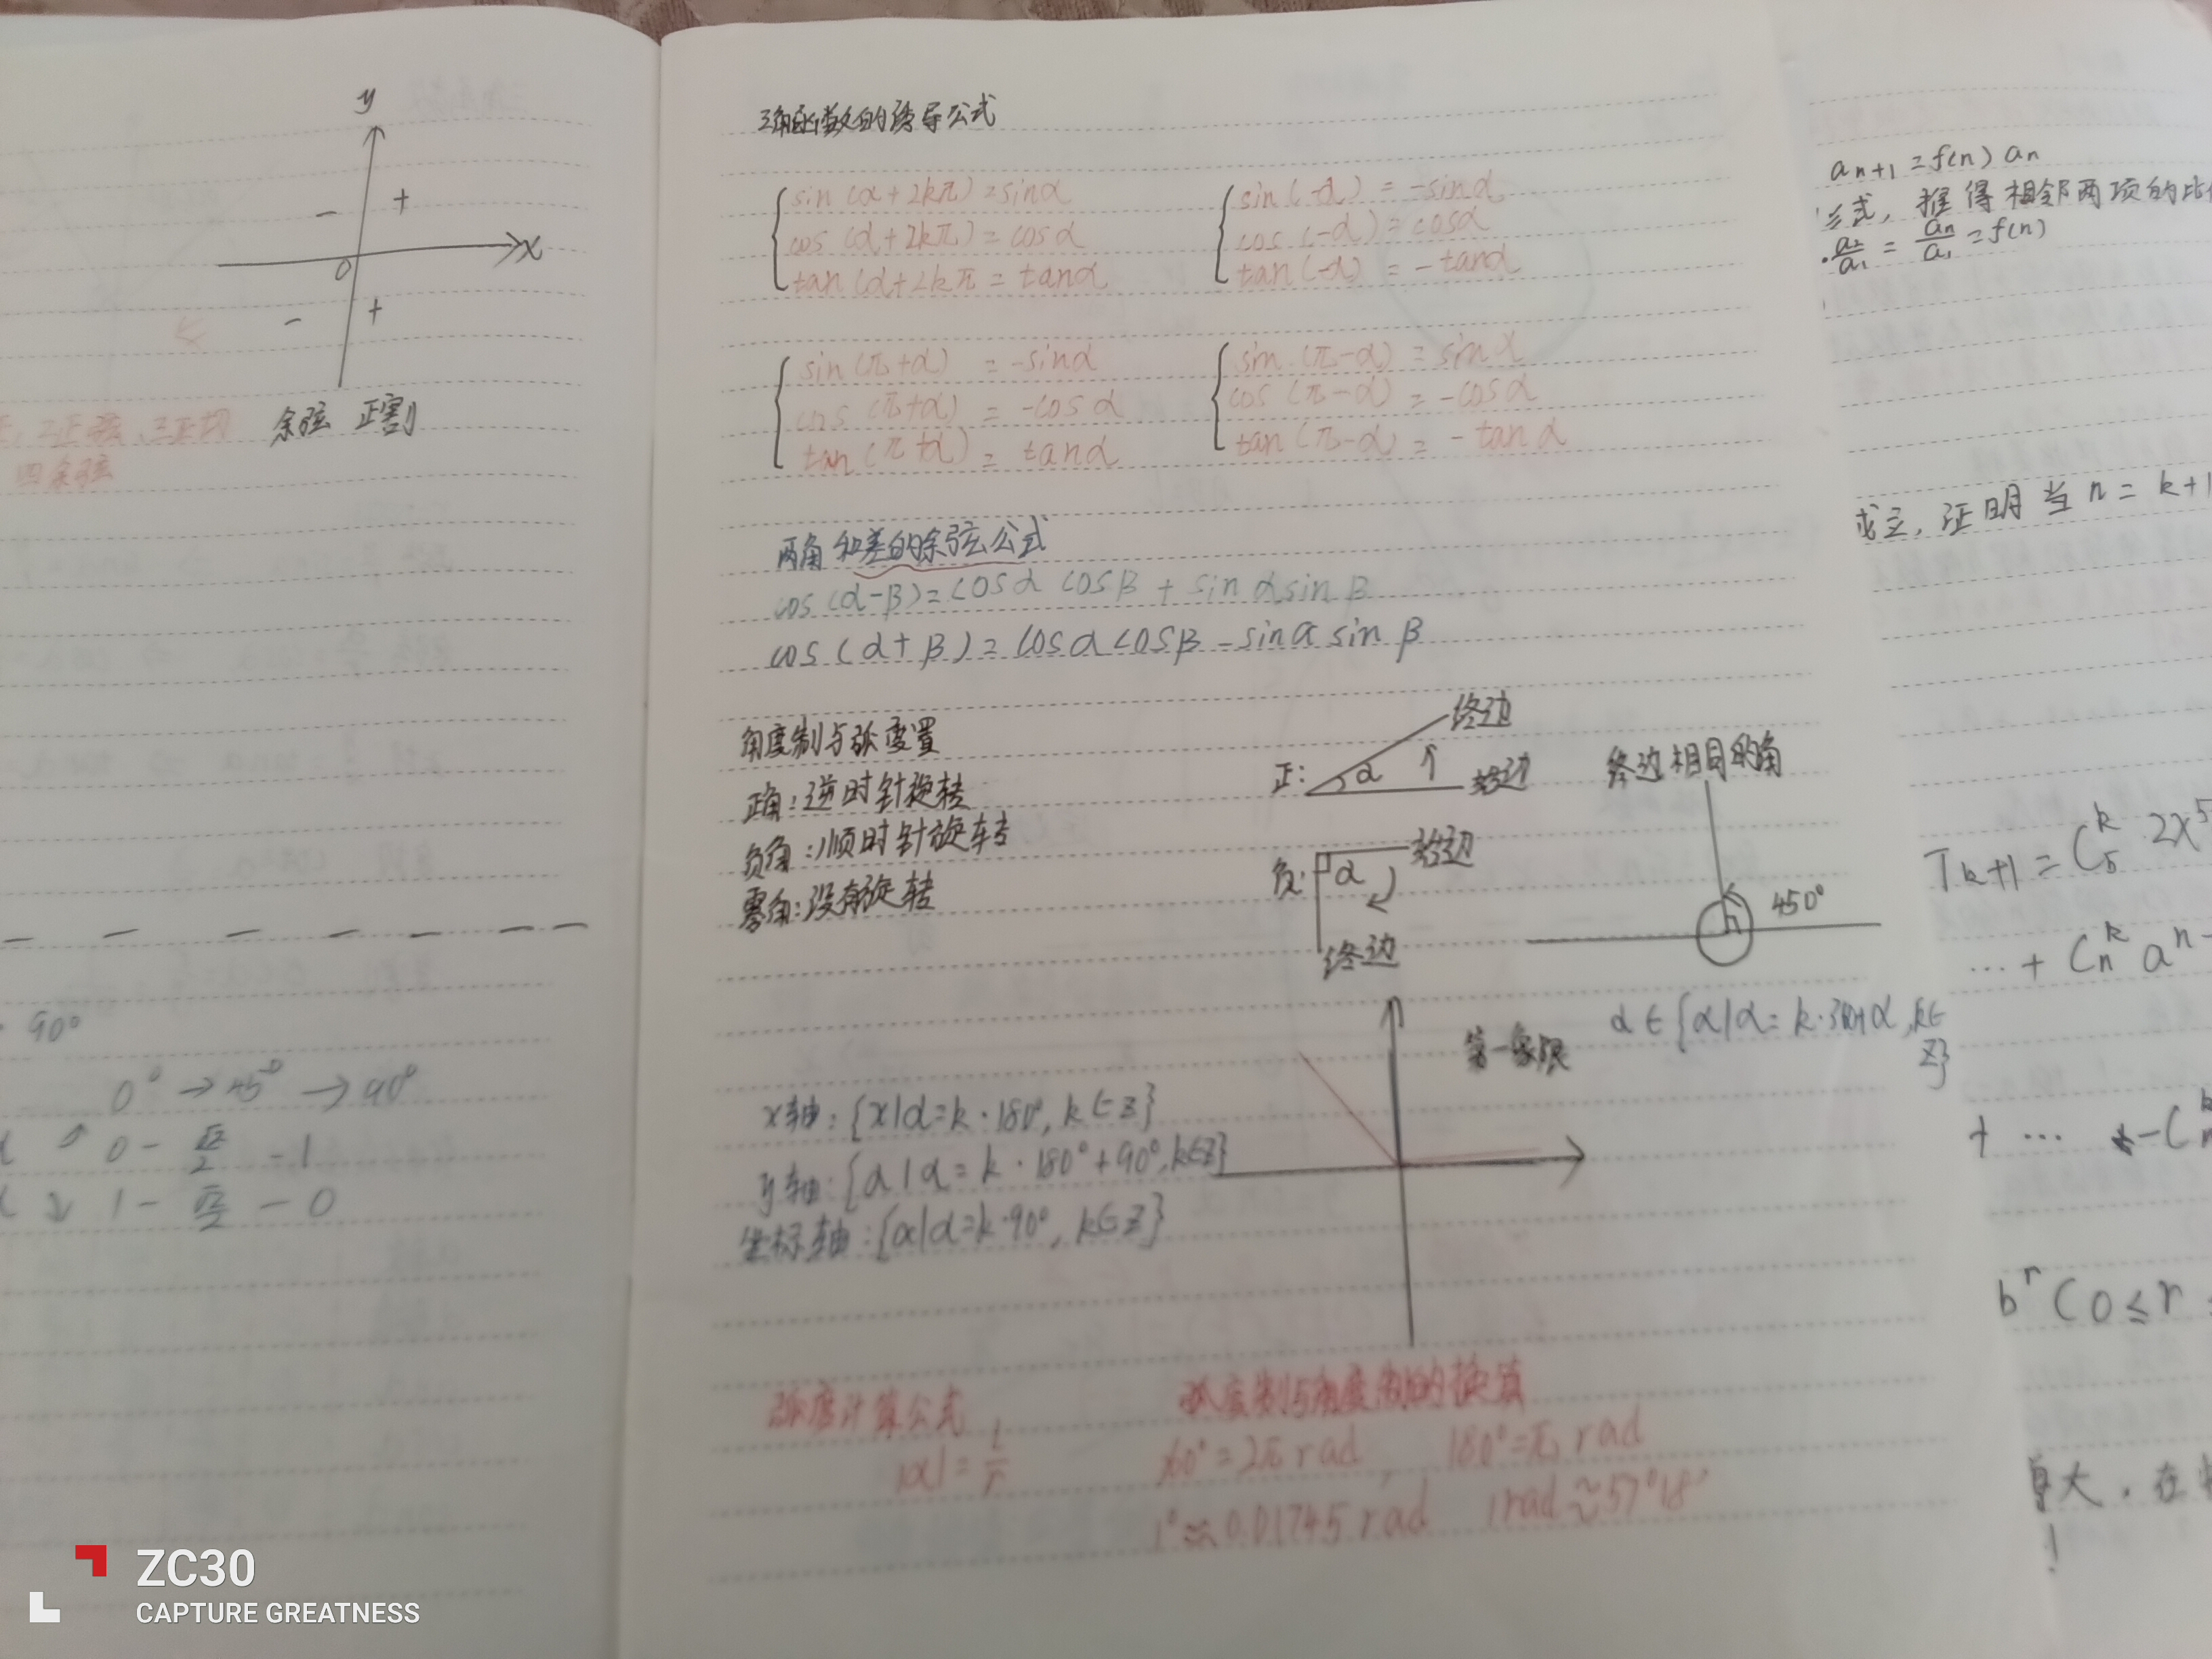 y
- +
O x
- +
二正弦、三正切 余弦 正割
四余弦
90°
0° → 45° → 90°
0 - π/2 - 1
1 - π/2 - 0
三角函数的诱导公式
sin(α+2kπ)=sinα
cos(α+2kπ)=cosα
tan(α+2kπ=tanα
sin(-α)=-sinα
cos(-α)=cosα
tan(-α)=-tanα
sin(π+α)=-sinα
cos(π+α)=-cosα
tan(π+α)=tanα
sin(π-α)=sinα
cos(π-α)=-cosα
tan(π-α)=-tanα
两角和差的余弦公式
cos(α-β)=cosα cosβ+sinαsinβ
cos(α+β)=cosαcosβ-sinαsinβ
角度制与弧度置
正角:逆时针旋转
负角:顺时针旋转
零角:没有旋转
终边
正: α ↑ 始边
负: α 始边
终边
终边相同的角
450°
第一象限
x轴:{x|α=k·180°,k∈Z}
y轴:{α|α=k·180°+90°,k∈Z}
坐标轴:{α|α=k·90°,k∈Z}
弧度计算公式
|α|=l/r
弧度制与角度制的换算
360°=2π rad, 180°=π rad
1°≈0.01745 rad 1rad≈57°18'
an+1=f(n)an
公式,推得相邻两项的比
a2/a1=an/a1=f(n)
成立,证明当n=k+1
Tk+1=C5^k 2x^5
…+Cn^k a^n-
+ …
b^r(0≤r≤
大.在
!
ZC30
CAPTURE GREATNESS